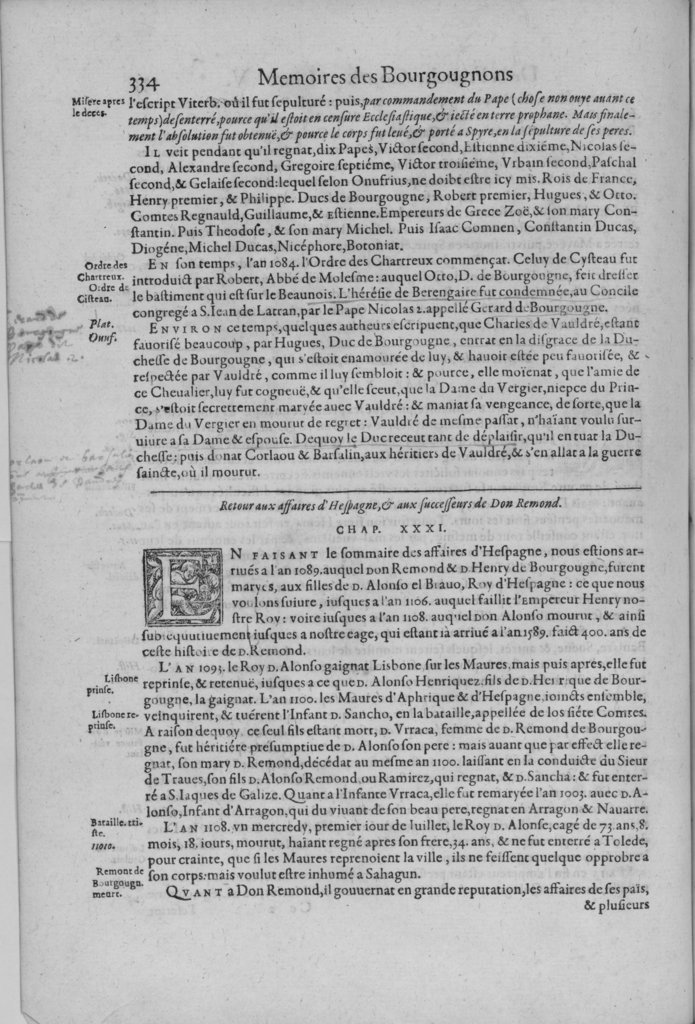 334 Memoires des Bourgougnons
Misere apres le deces.
l'escript Viterb. où il fut sepulturé : puis, par commandement du Pape (chose non ouye auant ce
temps) desenterré, pource qu'il estoit en censure Ecclesiastique, & iecté en terre prophane. Mais finale-
ment l'absolution fut obtenuë, & pource le corps fut leué, & porté a Spyre, en la sepulture de ses peres.
IL veit pendant qu'il regnat, dix Papes, Victor second, Estienne dixiéme, Nicolas se-
cond, Alexandre second, Gregoire septiéme, Victor troisiéme, Vrbain second, Paschal
second, & Gelaise second: lequel selon Onufrius, ne doibt estre icy mis. Rois de France,
Henry premier, & Philippe. Ducs de Bourgougne, Robert premier, Hugues, & Otto.
Comtes Regnauld, Guillaume, & Estienne. Empereurs de Grece Zoë, & son mary Con-
stantin. Puis Theodose, & son mary Michel. Puis Isaac Comnen, Constantin Ducas,
Diogéne, Michel Ducas, Nicéphore, Botoniat.
Ordre des Chartreux.
Ordre de Cisteau.
EN son temps, l'an 1084. l'Ordre des Chartreux commençat. Celuy de Cysteau fut
introduict par Robert, Abbé de Molesme: auquel Otto, D. de Bourgougne, feit dresser
le bastiment qui est sur le Beaunois. L'hérésie de Berengaire fut condemnée, au Concile
congregé a S. Iean de Latran, par le Pape Nicolas 2. appellé Gerard de Bourgougne.
Plat.
Onuf.
ENVIRON ce temps, quelques autheurs escripuent, que Charles de Vauldré, estant
fauorisé beaucoup, par Hugues, Duc de Bourgougne, entrat en la disgrace de la Du-
chesse de Bourgougne, qui s'estoit enamourée de luy, & hauoit estée peu fauorisée, &
respectée par Vauldré, comme il luy sembloit : & pource, elle moïenat, que l'amie de
ce Cheualier, luy fut cogneuë, & qu'elle sceut, que la Dame du Vergier, niepce du Prin-
ce, s'estoit secrettement maryée auec Vauldré : & maniat sa vengeance, de sorte, que la
Dame du Vergier en mourut de regret : Vauldré de mesme passat, n'haïant voulu sur-
uiure a sa Dame & espouse. Dequoy le Duc receut tant de déplaisir, qu'il en tuat la Du-
chesse: puis donat Corlaou & Barsalin, aux héritiers de Vauldré, & s'en allat a la guerre
saincte, où il mourut.
Retour aux affaires d'Hespagne, & aux successeurs de Don Remond.
CHAP. XXXI.
EN FAISANT le sommaire des affaires d'Hespagne, nous estions ar-
riués a l'an 1089. auquel Don Remond & D. Henry de Bourgougne, furent
maryés, aux filles de D. Alonso el Brauo, Roy d'Hespagne : ce que nous
voulons suiure, iusques a l'an 1106. auquel faillit l'Empereur Henry no-
stre Roy: voire iusques a l'an 1108. auquel Don Alonso mourut, & ainsi
subsequutiuement iusques a nostre eage, qui estant ià arriué a l'an 1589. faict 400. ans de
ceste histoire de D. Remond.
Lisbone prinse.
L'AN 1093. le Roy D. Alonso gaignat Lisbone sur les Maures, mais puis aprés, elle fut
reprinse, & retenuë, iusques a ce que D. Alonso Henriquez, fils de D. Henrique de Bour-
gougne, la gaignat. L'an 1100. les Maures d'Aphrique & d'Hespagne, ioincts ensemble,
Lisbone reprinse.
veinquirent, & tuérent l'Infant D. Sancho, en la bataille, appellée de los siéte Comtes.
A raison dequoy, ce seul fils estant mort, D. Vrraca, femme de D. Remond de Bourgou-
gne, fut héritiére presumptiue de D. Alonso son pere : mais auant que par effect elle re-
gnat, son mary D. Remond, décédat au mesme an 1100. laissant en la conduicte du Sieur
de Traues, son fils D. Alonso Remond, ou Ramirez, qui regnat, & D. Sancha: & fut enter-
ré a S. Iaques de Galize. Quant a l'Infante Vrraca, elle fut remaryée l'an 1003. auec D. A-
lonso, Infant d'Arragon, qui du viuant de son beau pere, regnat en Arragon & Nauarre.
Bataille triste.
11010.
L'AN 1108. vn mercredy, premier iour de Iuillet, le Roy D. Alonse, eagé de 73. ans, 8.
mois, 18. iours, mourut, haïant regné apres son frere, 34. ans, & ne fut enterré a Tolede,
pour crainte, que si les Maures reprenoient la ville, ils ne feissent quelque opprobre a
son corps: mais voulut estre inhumé a Sahagun.
Remont de Bourgougn. meurt.
QVANT a Don Remond, il gouuernat en grande reputation, les affaires de ses païs,
& plusieurs